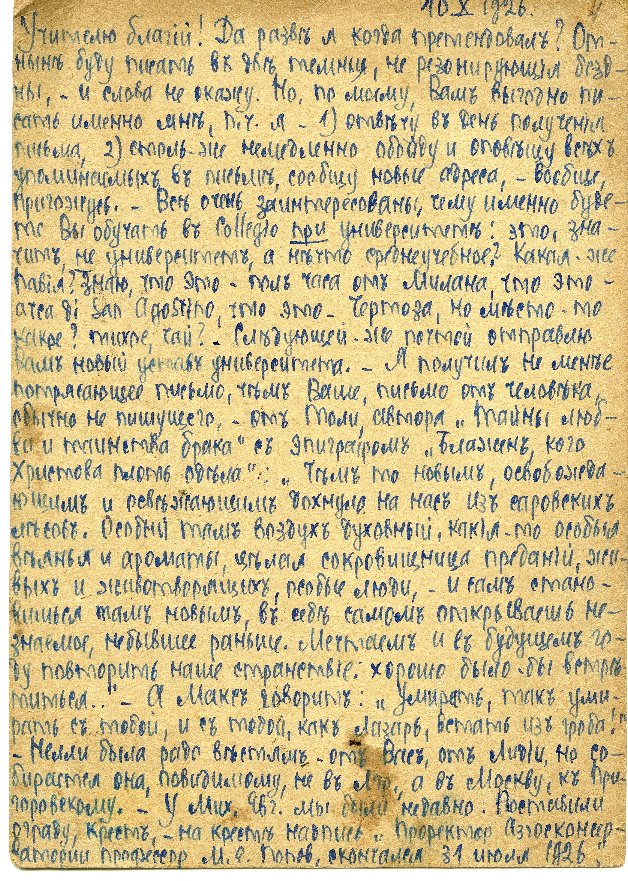 10 X 1926.
Учителю благій! Да развѣ я когда претендовалъ? От-
нынѣ буду писать въ двѣ темныя, не резонирующія безд-
ны, – и слова не скажу. Но, по моему, Вамъ выгодно пи-
сать именно мнѣ, п.ч. я – 1) отвѣчу въ день полученія
письма, 2) столь-же немедленно обойду и оповѣщу всѣхъ
упоминаемыхъ въ письмѣ, сообщу новые адреса, – вообще,
пригожусь. – Всѣ очень заинтересованы, чему именно буде-
те Вы обучать въ Collegio при университетѣ: это, зна-
читъ, не университетъ, а нѣчто среднеучебное? Какая-же
Павія? Знаю, что это – полъ часа отъ Милана, что это –
arca di San Agostino, что это – Чертоза, но мѣсто-то
какое? тихое, чай? – Слѣдующей-же почтой отправлю
Вамъ новый уставъ университета. – Я получилъ не менѣе
потрясающее письмо, чѣмъ Ваше, письмо отъ человѣка,
обычно не пишущего, – отъ Толи, автора „Тайны люб-
ви и таинства брака" съ эпиграфомъ „Блаженъ, кого
Христова плоть одѣла": „Чѣмъ то новымъ, освобожда-
ющимъ и освѣжающимъ дохнуло на насъ изъ саровскихъ
лѣсовъ. Особый тамъ воздухъ духовный, какія-то особыя
вѣянья и ароматы, цѣлая сокровищница преданій, жи-
выхъ и животворящихъ, особые люди, – и самъ стано-
вишься тамъ новымъ, въ себѣ самомъ открываешь не-
знаемое, небывшее раньше. Мечтаемъ и въ будущемъ го-
ду повторить наше странствіе: хорошо было-бы встрѣ-
титься..." – А Максъ говоритъ: „Умирать, такъ уми-
рать съ тобой, и съ тобой, какъ Лазарь, встать изъ гроба!"
– Нелли была рада вѣстямъ отъ Васъ, отъ Лидіи, но со-
бирается она, повидимому, не въ а въ Москву, къ При-
горовскому. – У Мих. мы были недавно. Поставили
ограду, крестъ, – на крестѣ надпись „Проректор Азгосконсер-
ватории профессор М. Е. Попов, скончался 31 июля 1926",